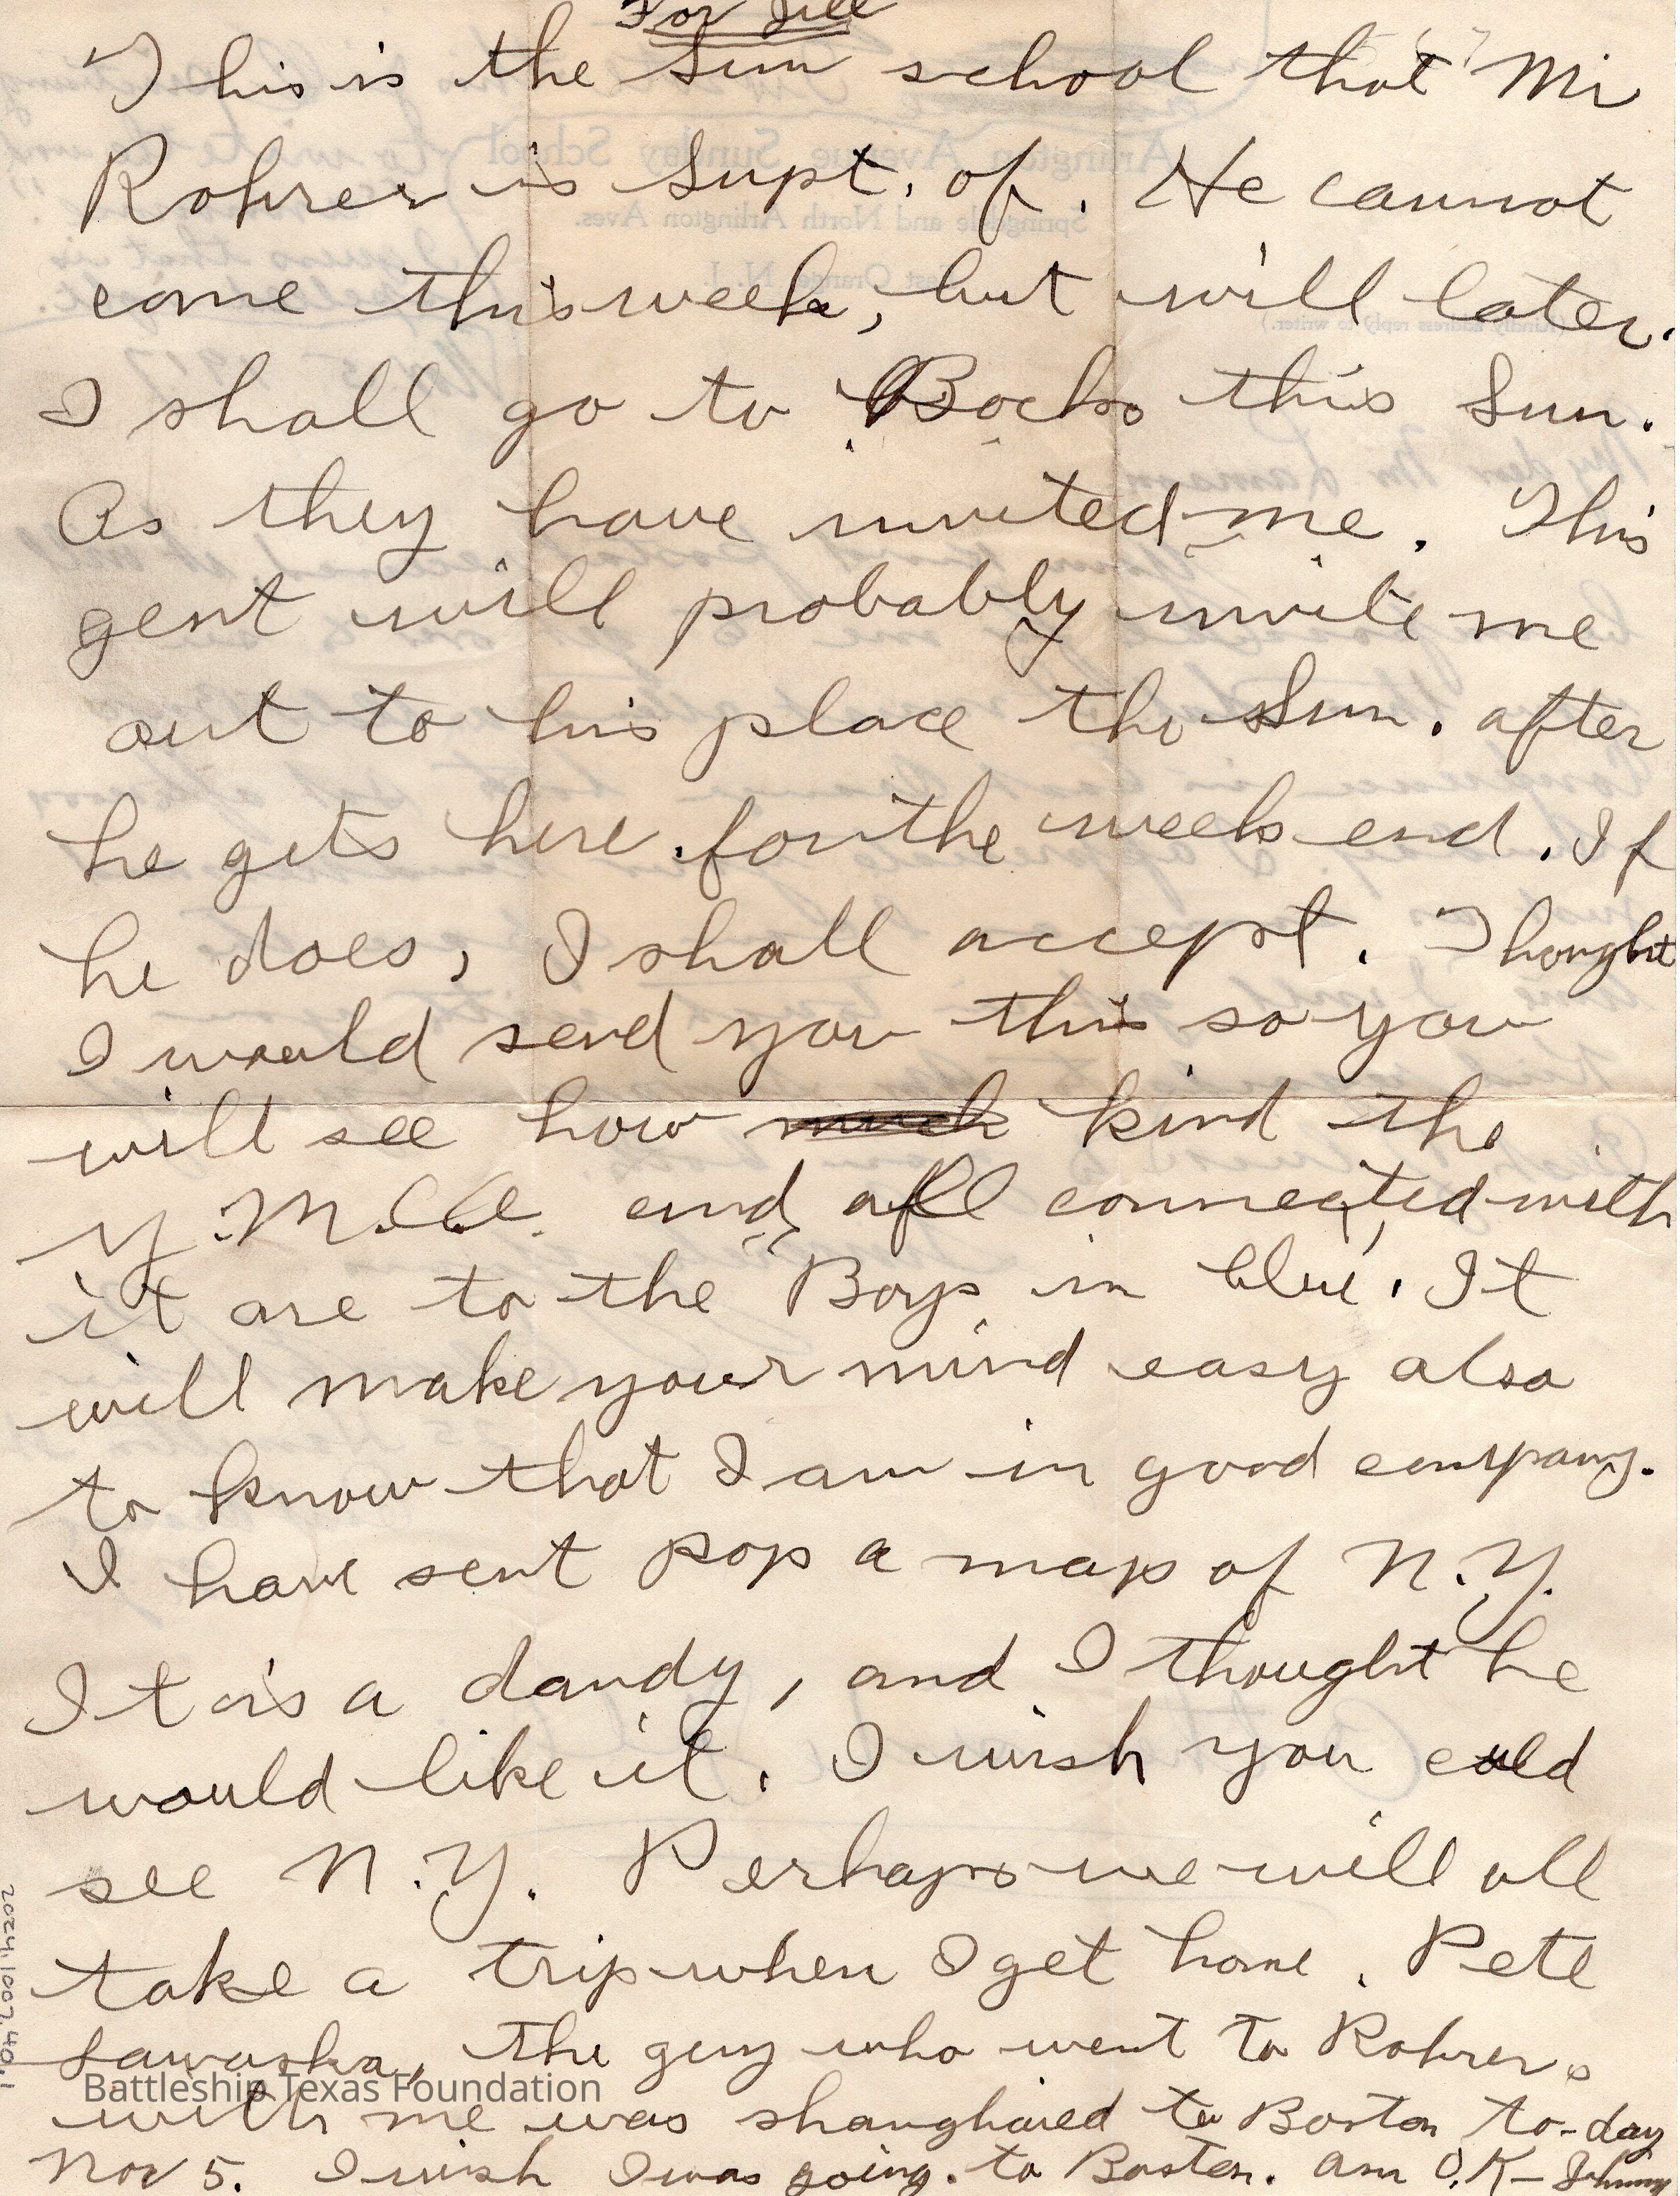 For Jill
This is the Sun school that Mr
Rohrer is Supt. of. He cannot
come this week, but will later.
I shall go to Bocks this Sun.
As they have invited me. This
gent will probably invite me
out to his place the Sun. after
he gets here for the week end. If
he does, I shall accept. Thought
I would send you this so you
will see how much kind the
Y.M.C.A. and all connected with
it are to the "Boys in blue. It
will make your mind easy also
to know that I am in good company.
I have sent pop a map of N.Y.
It is a dandy, and I thought he
would like it. I wish you could
see N.Y. Perhaps we will all
take a trip when I get home. Pete
the guy who went to Rohrers
with me was shanghaied to Boston to-day
Nov 5. I wish I was going to Boston. Am O.K - Johnny
Battleship Texas Foundation
2024.1007.40.1
Arlington Avenue Sunday School
Springdale and North Arlington Aves.
East Orange, N.J.
(Kindly address reply to writer.)
My dear Mr.